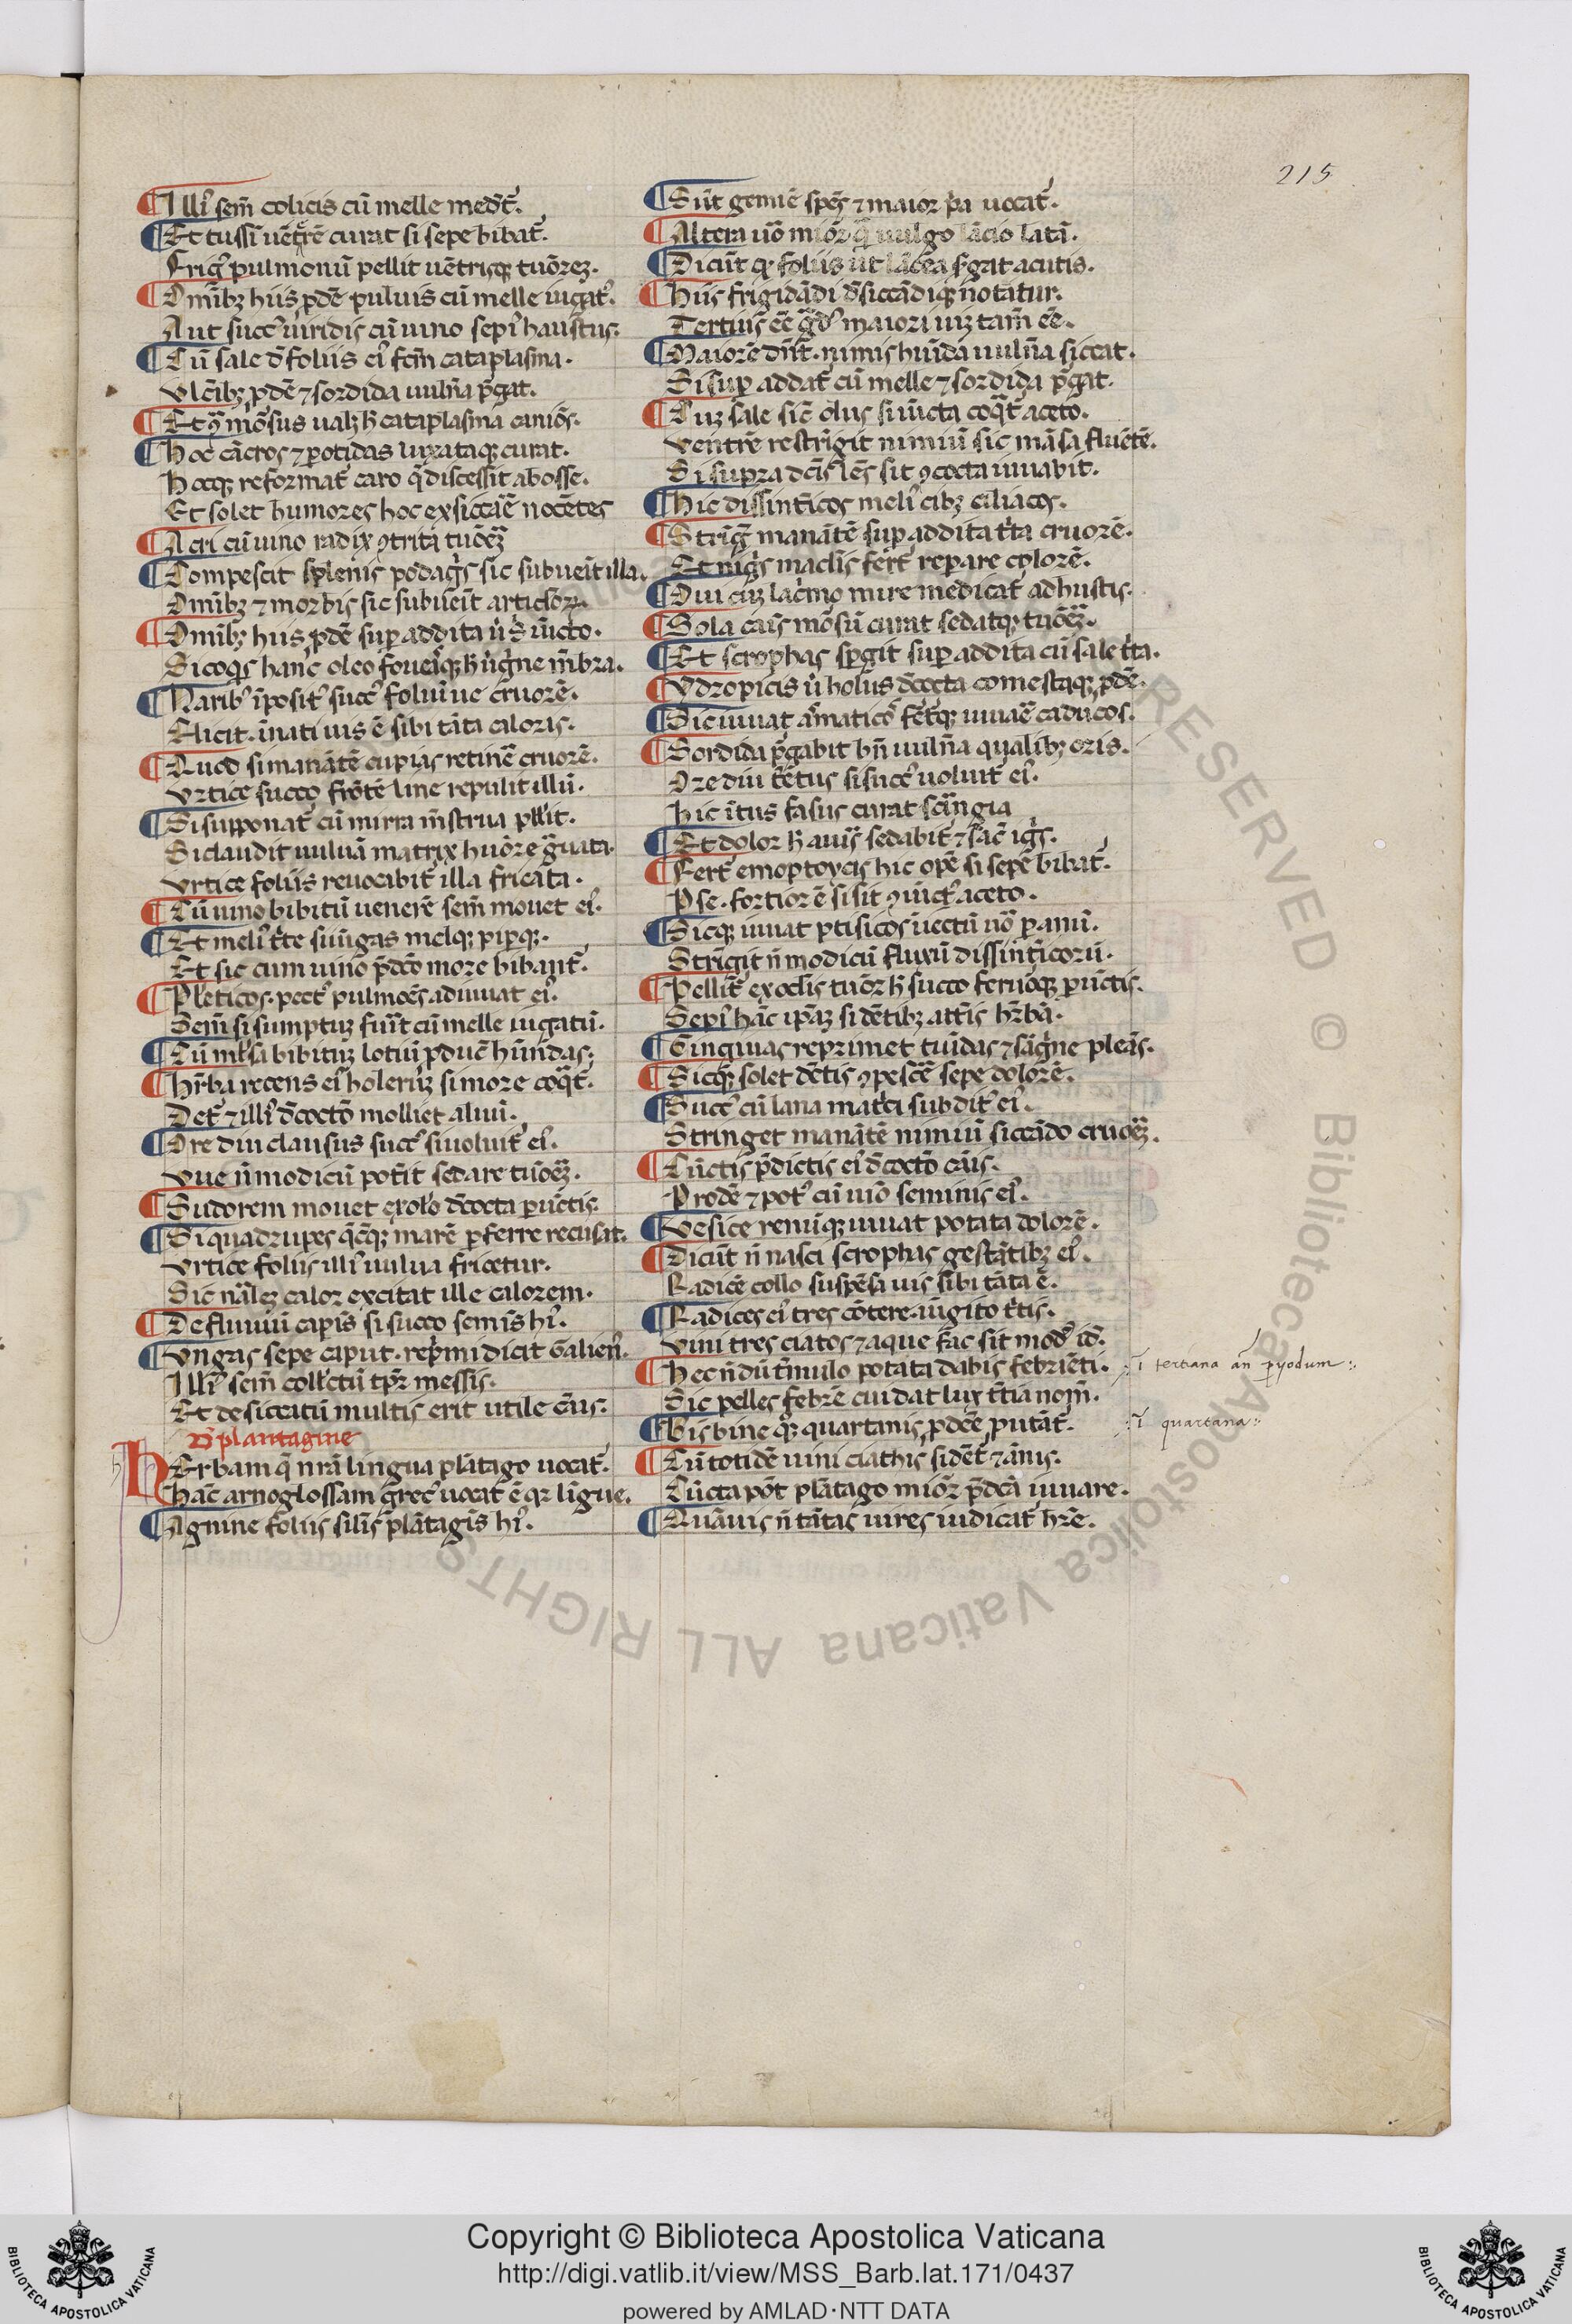 215
Illiꝰ sem̄ colicis cū melle med̄t᷑.
Et tussī uēt̄rē curat si sepe bibat᷑.
Frigꝰ pulmonū pellit uētrisqꝫ tuōreꝫ.
Om̄ibꝫ hiis ꝓdē puluis cū melle iugat᷑.
Aut succꝰ uiridis cū uino sepiꝰ haustus.
Cū sale d̄ foliis eiꝰ fcm̄ cataplasma.
Vlc̄ibꝫ ꝓdē ⁊ sordida uulnā p̄gat.
Et ꝯ mōsus ualꝫ h̄ cataplasma caniōs.
Hoc cācros ⁊ ꝑotidas luxataqꝫ curat.
Hocqꝫ reformat᷑ caro q̄ discessit ab osse.
Et solet humores hoc exsiccāē nocētes
Acri cū uino radix ꝯtrita tuōeꝫ
Compescit splenis podaḡs sic subueīt illa.
Om̄ibꝫ ⁊ morbis sic subūeīt articlōꝝ.
Om̄ibꝫ hiis ꝓdē suꝑ addita
Si coqꝰ hanc oleo foueᷓsqꝫ
Naribꝰ īpositꝰ succꝰ foluī ue c̄ruorē.
Elicit. īnati uis ē sibi tāta caloris.
Quod si manātē cupias retinē cruorē.
Vrtice succo frōtē line repulit illū.
Si supponat᷑ cū mirra m̄strua pellit.
Si claudit uuluā matrix huōre ḡuata.
Vrtice foliis reuocabit᷑ illa fricāta.
Cū uino bibitū uenerē sem̄ mouet eiꝰ.
Et meliꝰ t̄te si iūgas melqꝫ pipqꝫ.
Et sic cum uino p̄dc̄o more bibant᷑.
Pleticos. pectꝰ pulmoēs adiuuat eiꝰ.
Sem̄ si sumptuꝫ fuīt cū melle iugatū.
Cū mīsa bibituꝫ lotuī ꝓducē hūndas.
Hr̄ba recens eiꝰ holeruꝫ si more coqᷓt᷑.
Det᷑ ⁊ illiꝰ d̄coctō molliet aluū.
Ore diu clausus succꝰ si uoluit᷑ eiꝰ.
Vue n̄ modicū pot̄it sedare tuōeꝫ.
Sudorem mouet ex oleo d̄cocta ꝑūctis.
Si quadrupes qᷓcqꝫ marē ꝑferre recusat.
Vrtice foliis illiꝰ uulua fricetur.
Sic nāleꝫ calor excitat ille calorem.
De fluuiū capis si succo semīs hꝰ.
Vngas sepe caput. rep̄mi dicit Galienꝰ.
Illiꝰ sem̄ collc̄tū tp̄r messis.
Et desiccatū multis erit utile cāus.
D̄ plantagine
HErbam q̄ nrā lingua plātago uocat᷑.
Hāc arnoglossam grecꝰ uocat ē qꝛ līgue.
Agnine foliis silis plātagīs hꝰ.
Sūt gemīe spēs ⁊ maior p̄a uocat᷑.
Altera uō miōr qᷓ uulgo lācio latā.
Dicūt qꝛ foliis ut lācea s̄gat acutis.
Hiis frigidādi d̄siccādiqꝫ notatur.
Tertius ēē ḡdꝰ maiori uiꝫ tam̄ ēē.
Maiorē dn̄t. nimis hūida uulnā siccat.
Si suꝑ addat᷑ cū melle ⁊ sordida p̄gat.
Cuꝫ sale sic̄ olus si iūcta coqᷓt᷑ aceto.
Ventrē restrīgit nimiū sic māsa fluētē.
Si supra dc̄is lēs sit ꝯcocta iuuabit.
Hic dissint̄icos meliꝰ cibꝫ ciliacos.
Strīgꝫ manātē suꝑ addita t̄ta cruorē.
Et niḡs maclīs fert᷑ reꝑare colorē.
Oui cuꝫ lac̄mo mire medicat᷑ adhustis.
Sola caīs mōsū curat sedatqꝫ tuōeꝫ.
Et scrophas sp̄git suꝑ addita cū sale t̄ta.
Ydropicis ū holus d̄cocta comestaqꝫ ꝓdē.
Sic iuuat asmaticoꝰ fert᷑qꝫ iuuāē caducos.
Sordida p̄gabit bn̄ uulnā qualibꝫ oris.
Ore diu t̄etus si succꝰ uoluit᷑ eiꝰ.
Hic ītus fasus curat scāngia
Et dolor h̄ auiꝰ sedabit᷑ ⁊ sac̄ iḡs.
Fert᷑ emoptoycis hic opē si sepe bibat᷑.
Ꝑ se. fortior ē si sit ꝯiūctꝰ aceto.
Sicqꝫ iuuat ptisicos īiectū uō ꝑ anū.
Strīgit n̄ modicū fluxū dissint̄icorū.
Pellit᷑ ex oclīs tuōr h̄ succo feruōqꝫ ꝑūctis.
Sepiꝰ hāc ipāꝫ si dētibꝫ att̄is hr̄bā.
Gingiuas reprimet tuīdas ⁊ sāḡne pleās.
Sicqꝫ solet dētis ꝯpescē sepe dolorē.
Succꝰ cū lana mat̄ci subditꝰ eiꝰ.
Stringet manātē nimiū siccādo cruoeꝫ.
Cūctis p̄dictis eiꝰ d̄coctō cāis.
Prodē ⁊ potꝰ cū uīo seminis eiꝰ.
Vesice renūqꝫ iuuat potata dolorē.
Dicūt n̄ nasci scrophas gestātibꝫ eiꝰ.
Radicē collo suspēsā uis sibi tāta ē.
Radices eiꝰ tres cōtere. iūgito t̄tis.
Vini tres ciatos ⁊ aque fac sit modꝰ id̄.
Hec n̄dū t̄mulo potata dabis febriēti.
Sic pelles febrē cui dat lux t̄tia nom̄.
Bis bine qꝫ quartanis ꝓdēē putāt᷑.
Cū totidē uini ciathis sidēt ⁊ āuis.
Cūcta pōt plātago miōr p̄dc̄a iuuare.
Quāuis n̄ tātas uires iudicat᷑ hr̄e.
ī tertiana an̄ ꝑyodum
ī quartana
ALL RIGHTS RESERVED © Biblioteca Apostolica Vaticana
Copyright © Biblioteca Apostolica Vaticana
http://digi.vatlib.it/view/MSS_Barb.lat.171/0437
powered by AMLAD·NTT DATA
BIBLIOTECA APOSTOLICA VATICANA
BIBLIOTECA APOSTOLICA VATICANA